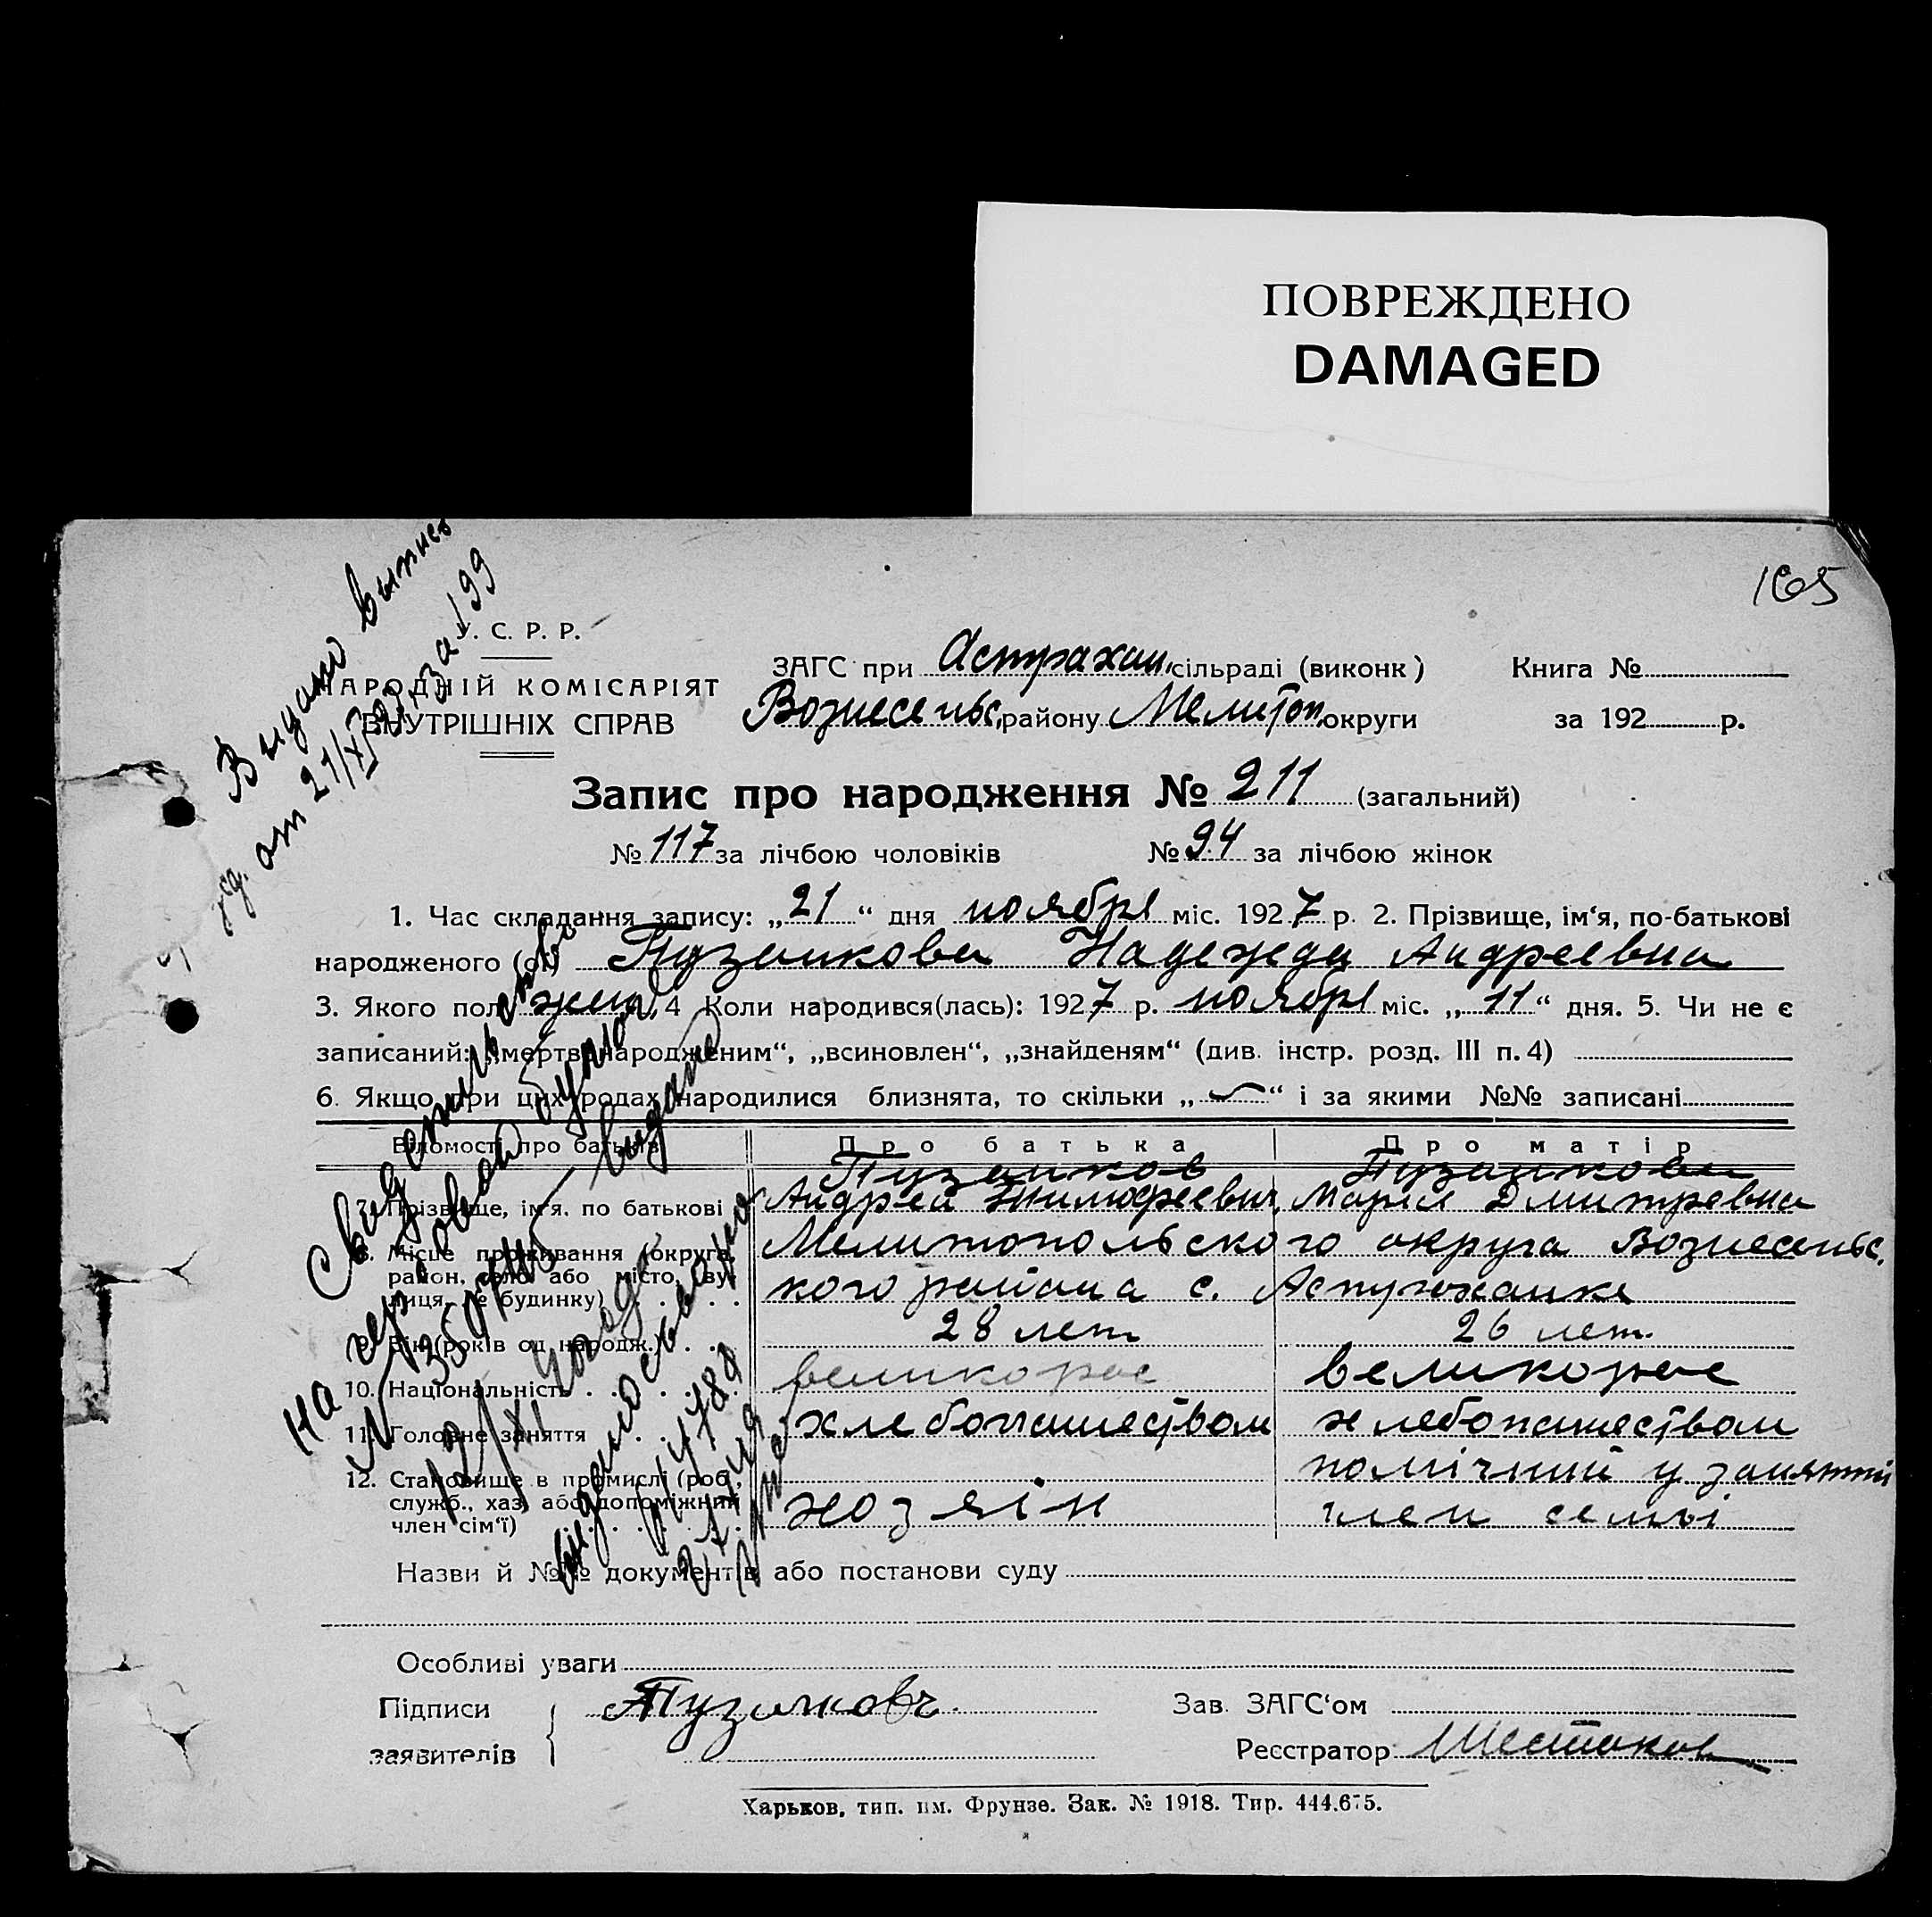 ПОВРЕЖДЕНО
DAMAGED
165
У. С. Р. Р.
НАРОДНІЙ КОМІСАРІЯТ
ВНУТРІШНІХ СПРАВ
ЗАГС при Астрахан. сільраді (виконк)
Вознесенс. району Мелітоп. округи
Книга №
за 192 р.
Запис про народження № 211 (загальний)
№ 117 за лічбою чоловіків № 94 за лічбою жінок
1. Час складання запису: „21“ дня ноября міс. 1927 р. 2. Прізвище, ім‘я, по-батькові
народженого (ої) Пузанкова Надежда Андреевна
3. Якого пол жен. 4 Коли народився(лась): 1927 р. ноября міс. „11“ дня. 5. Чи не є
записаний: „мертвонародженим“, „всиновлен“, „знайденям“ (див. інстр. розд. III п. 4)
6. Якщо при цих родах народилися близнята, то скільки „ “ і за якими №№ записані
Відомості про батьків Про батька Про матір
Пузанков Пузанкова
7. Прізвище, ім‘я, по батькові Андрей Тимофеевич Мария Дмитревна
8. Місце проживання (округа, Мелитопольского округа Вознесенс.
район, село або місто, ву-
лиця, № будинку) кого района с. Астраханке
9. Вік (років од народж.) 28 лет 26 лет.
10. Національність великорос великорос
11. Головне заняття хлебопашеством хлебопашеством
12. Становище в промислі (роб., помічний у занятти
служб., хаз. або допоміжний хозяін член семьі
член сім‘ї)
Назви й №№ документів або постанови суду
Особливі уваги
Підписи Пузанковъ.
заявителів
Зав. ЗАГС‘ом
Реєстратор Шестаков
Харьков, тип. им. Фрунзе. Зак. № 1918. Тир. 444.675.
Видано
от 21/XI за 199
Свидетельство
на гербовой бумаге
№ видано
12/XI
видано